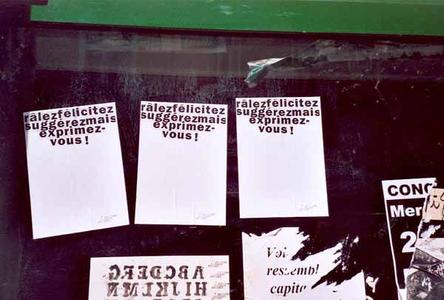 râlezfélicitez
suggérezmais
exprimez-
vous !
râlezfélicitez
suggérezmais
exprimez-
vous !
râlezfélicitez
suggérezmais
exprimez-
vous !
CONC
Mer
2
ABCDEFG
HIJKLMN
Voi
ressembl
capita